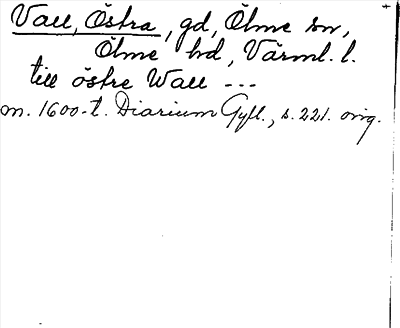 Vall, Östra, gd, Ölme sn,
Ölme hd, Värml. l.
till östre Wall ---
m. 1600-t. Diarium Gyll., s. 221. orig.